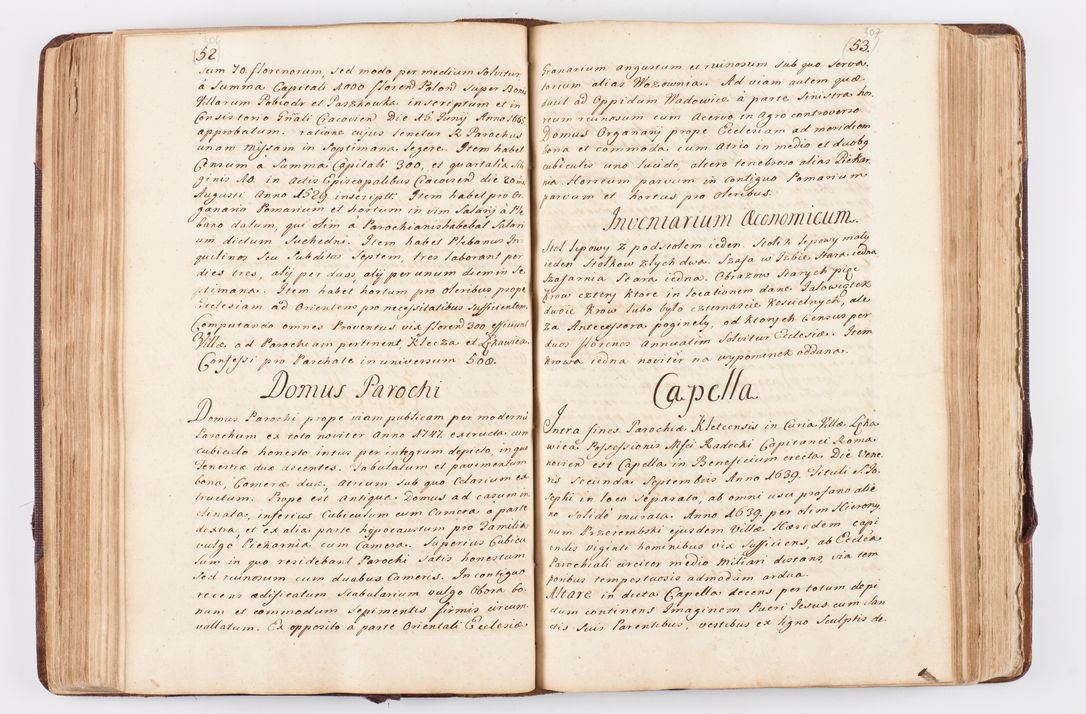 206
(52)
sum 70 florenorum, sed modo per medium solvitur
à Summa Capitali 1000 florend Polond super Bonis
Villarum Pobiedr et Paszkowka inscriptum et in
Consistorio Gnâli Cracovien Die 15 Junij Anno 1665
approbatum. ratione cujus tenetur R Parochus
unam missam in Septimana legere. Item habet
Censum a Summa Capitali 300, et quartalia
ginis 10. in Actis Episcopalibus Cracovien die 20
Augusti Anno 1529 inscriptt. Item habet pro Or
ganario Pomarium et hortum in vim Salarij à Ple
bano datum, qui olim à Parochianis habebat Salari
um dictum Suchedni. Item habet Plebanus In
quilinos seu Subditos Septem, tres laborant per
dies tres, alij per duos, alij per unum diem in Se
ptimana. Item habet hortum pro oleribus prope
Ecclesiam ad Orientem pro necessitatibus sufficientem
Computando omnes Proventus vix florend 300 efficiunt
Villæ ad Parochiam pertinent, Klecza et Łękawica.
Confessi pro Paschate in universum 500.
Domus Parochi
Domus Parochi prope viam publicam per modernũ
Parochum ex toto noviter Anno 1747. extructa cum
cubiculo honesto intus per integrum depicto, in quo
Fenestræ duæ decentes. Tabulatum et pavimentum
bona, Cameræ duæ, Atrium sub quo Celarium ex
tructum. Prope est antiqua Domus ad casum in
clinata, inferius Cubiculum cum Camera a parte
dextra, et ex alia parte hypocaustum pro Familia
vulgo Piekarnia cum Camera. Superius Cubicu
lum in quo residebant Parochi satis honestum
sed ruinosum cum duabus Cameris. In contiguo
recens ædificatum Stabularium vulgo Obora bo
num et commodum sepimentis firmis circum
vallatum. Ex opposito à parte Orientali Ecclesiæ
207
(53.
Granarium angustum et ruinosum sub quo Serva
tortum alias Wozownia. Ad viam autem quæ
ducit ad Oppidum Wadowice à parte sinistra hor
reum ruinosum cum Acervo in Agro controverso.
Domus Organarij prope Ecclesiam ad meridiem
bona et commoda cum Atrio in medio et duobg
cubiculis uno lucido, altero tenebroso alias Piekar
nia. Horreum parvum in contiguo Pomarium
parvum et hortus pro oleribus.
Inventarium Œconomicum.
Stol lipowy z podstolem ieden. Stolik lipowy maly
ieden Stolkow zlych dwa. Szafa w Izbie Stara iedna
Szafarnia Stara iedna. Obrazow Starych pięc
Krow cztery ktore in locationem dane Jalowiczek
dwoie Krow lubo było czternascie Koscielnych, ale
za Antecessora poginely, od ktorych Census per
duos florenos Annuatim Solvitur Ecclesiæ. Item
krowa iedna noviter na wypominek oddana.
Capella
Intra fines Parochiæ Kletcensis in Curia Villæ Łęka
wica Possessionis Msci Radecki Capitanei Roma
novien est Capella in Beneficium erecta Die Vene
ris secunda Septembris Anno 1639. Tituli S. Jo
sephi in loco separato, ab omni usu profano alie
no solidè murata. Anno 1639. per olim Hierony
num Przerembski ejusdem Villæ Hæredem capi
endis viginti hominibus vix sufficiens, ab Eccliâ
Parochiali circiter medio miliari distans, via tem
poribus tempestuosis admodum ardua.
Altare in dicta Capella decens per totum depi
ctum continens Imaginem Pueri Jesus cum San
ctis suis Parentibus, vestibus ex ligno sculptis de.